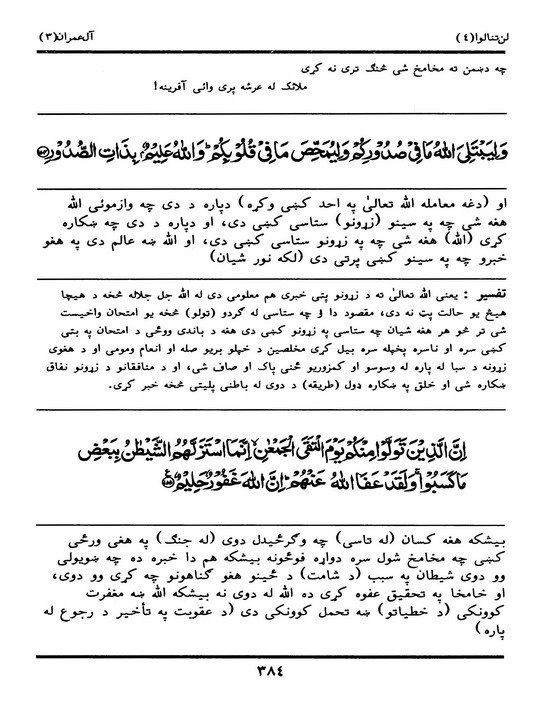 لن تنالوا(٤) آل عمران(٣)
چه دښمن ته مخامخ شی څنګ تری نه کړی
ملائک له عرشه پری وائی آفرینه!
وَلِيَبْتَلِيَ اللّٰهُ مَا فِيْ صُدُوْرِكُمْ وَلِيُمَحِّصَ مَا فِيْ قُلُوْبِكُمْ ؕ وَاللّٰهُ عَلِيْمٌۢ بِذَاتِ الصُّدُوْرِ ﴿١٥٤﴾
او (دغه معامله الله تعالیٰ په احد کښی وکړه) دپاره د دی چه وازموئی الله
هغه شی چه په سینو (زړونو) ستاسی کښی دی، او دپاره د دی چه ښکاره
کړی (الله) هغه شی چه په زړونو ستاسی کښی دی، او الله ښه عالم دی په هغو
خبرو چه په سینو کښی پرتی دی (لکه نور شیان)
تفسیر : یعنی الله تعالیٰ ته د زړونو پتی خبری هم معلومی دی له الله جل جلاله څخه د هیچا
هیڅ یو حالت پت نه دی، مقصود دا ؤ چه ستاسی له ګردو (تولو) څخه یو امتحان واخیست
شی تر څو هر هغه شیان چه ستاسی په زړونو کښی دی هغه د باندی ووځی د امتحان په بتی
کښی سره او ناسره پخپله سره بیل کړی مخلصین د خپلو بریو صله او انعام ومومی او د هغوی
زړونه د سبا له پاره له وسوسو او کمزوریو ځنی پاک او صاف شی، او د منافقانو د زړونو نفاق
ښکاره شی او خلق په ښکاره ډول (طریقه) د دوی له باطنی پلیتی څخه خبر کړی.
اِنَّ الَّذِيْنَ تَوَلَّوْا مِنْكُمْ يَوْمَ الْتَقَى الْجَمْعٰنِ ۙ اِنَّمَا اسْتَزَلَّهُمُ الشَّيْطٰنُ بِبَعْضِ
مَا كَسَبُوْا ۚ وَلَقَدْ عَفَا اللّٰهُ عَنْهُمْ ؕ اِنَّ اللّٰهَ غَفُوْرٌ حَلِيْمٌ ﴿١٥٥﴾
بیشکه هغه کسان (له تاسی) چه وګرځیدل دوی (له جنګ) په هغی ورځی
کښی چه مخامخ شول سره دواړه فوځونه بیشکه هم دا خبره ده چه ښویولی
وو دوی شیطان په سبب (د شامت) د ځینو هغو ګناهونو چه کړی وو دوی،
او خامخا په تحقیق عفوه کړی ده الله له دوی نه بیشکه الله ښه مغفرت
کوونکی (د خطیاتو) ښه تحمل کوونکی دی (د عقوبت په تأخیر د رجوع له
پاره)
٣٨٤